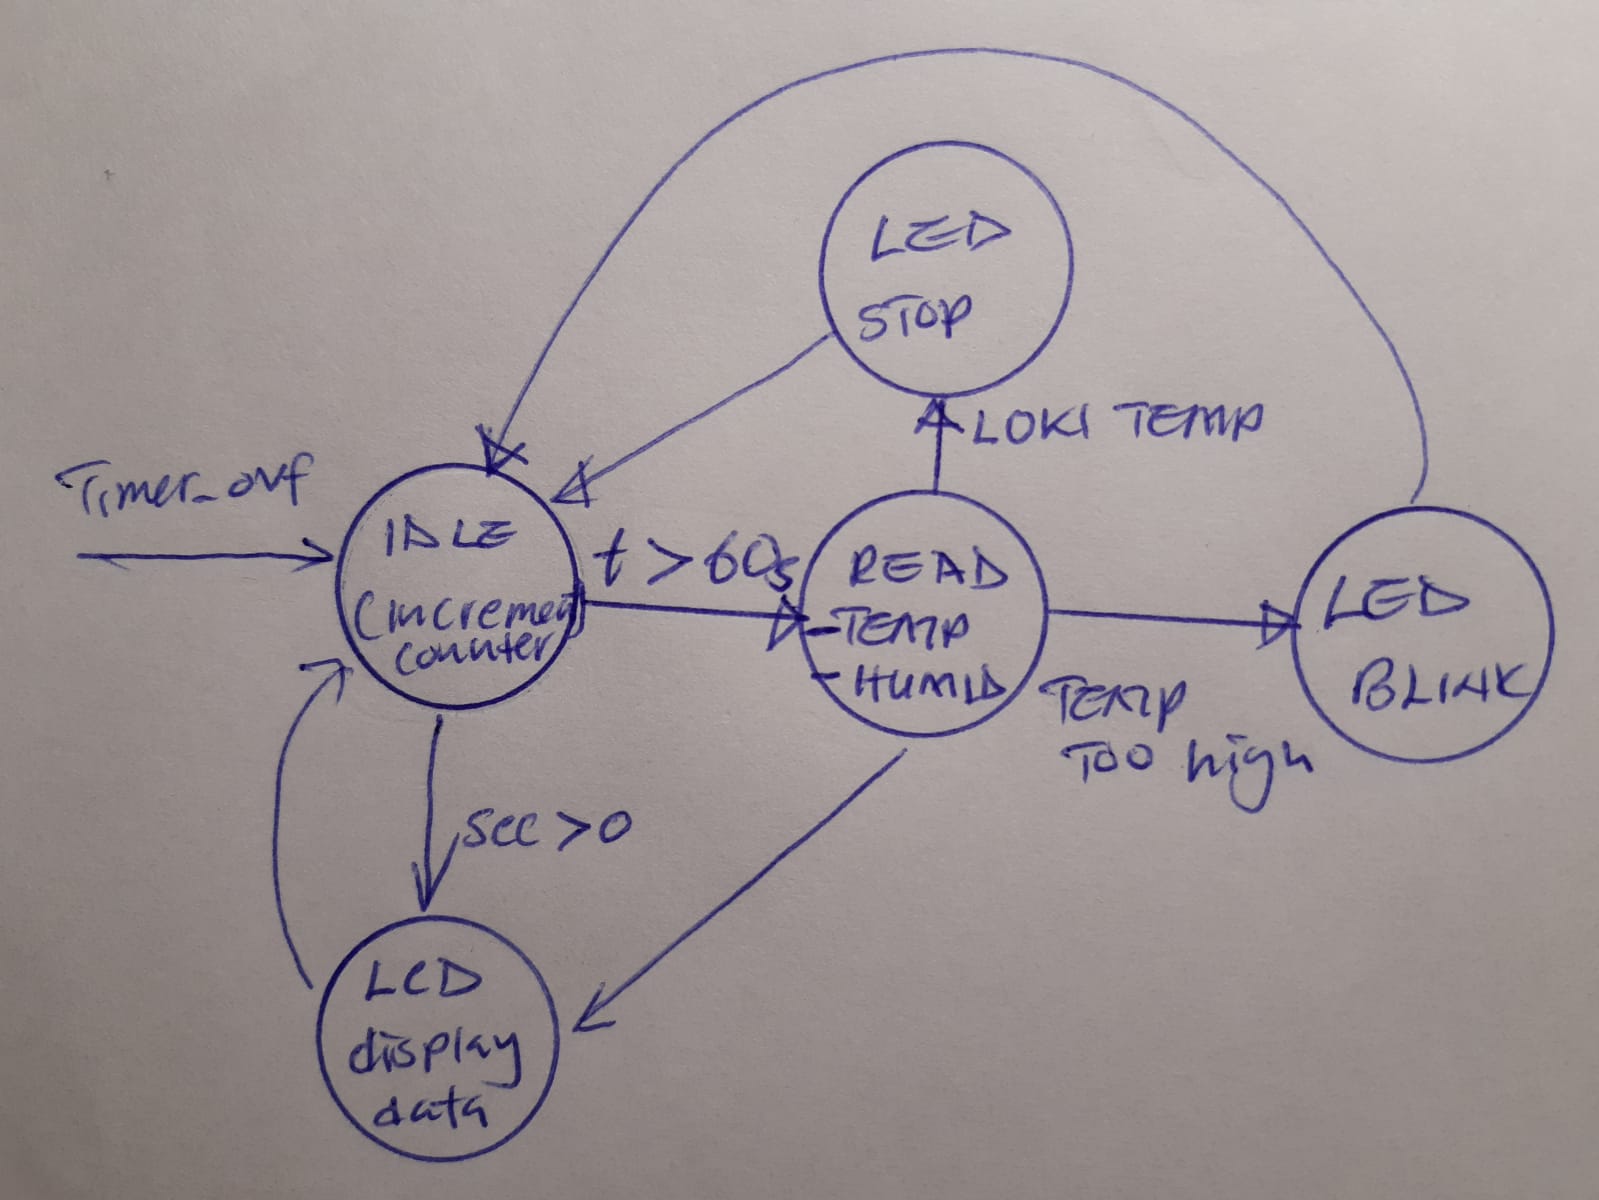 LED
STOP
LOKI TEMP
Timer_ovf
IDLE
(increment
counter
t > 60s
READ
-TEMP
-HUMID
TEMP
TOO high
LED
BLINK
sec > 0
LCD
display
data